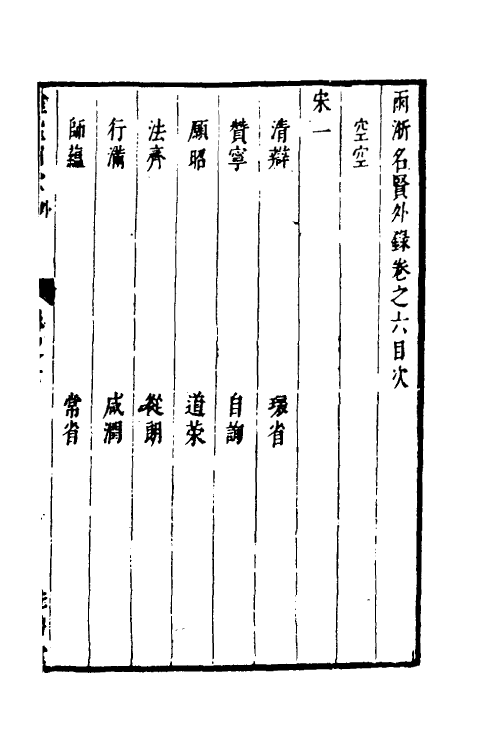 兩浙名賢外錄卷之六目次
空空
宋一
清辯 環省
贊寧 自詢
願昭 道榮
法齊 從朗
行滿 咸潤
師蘊 常省